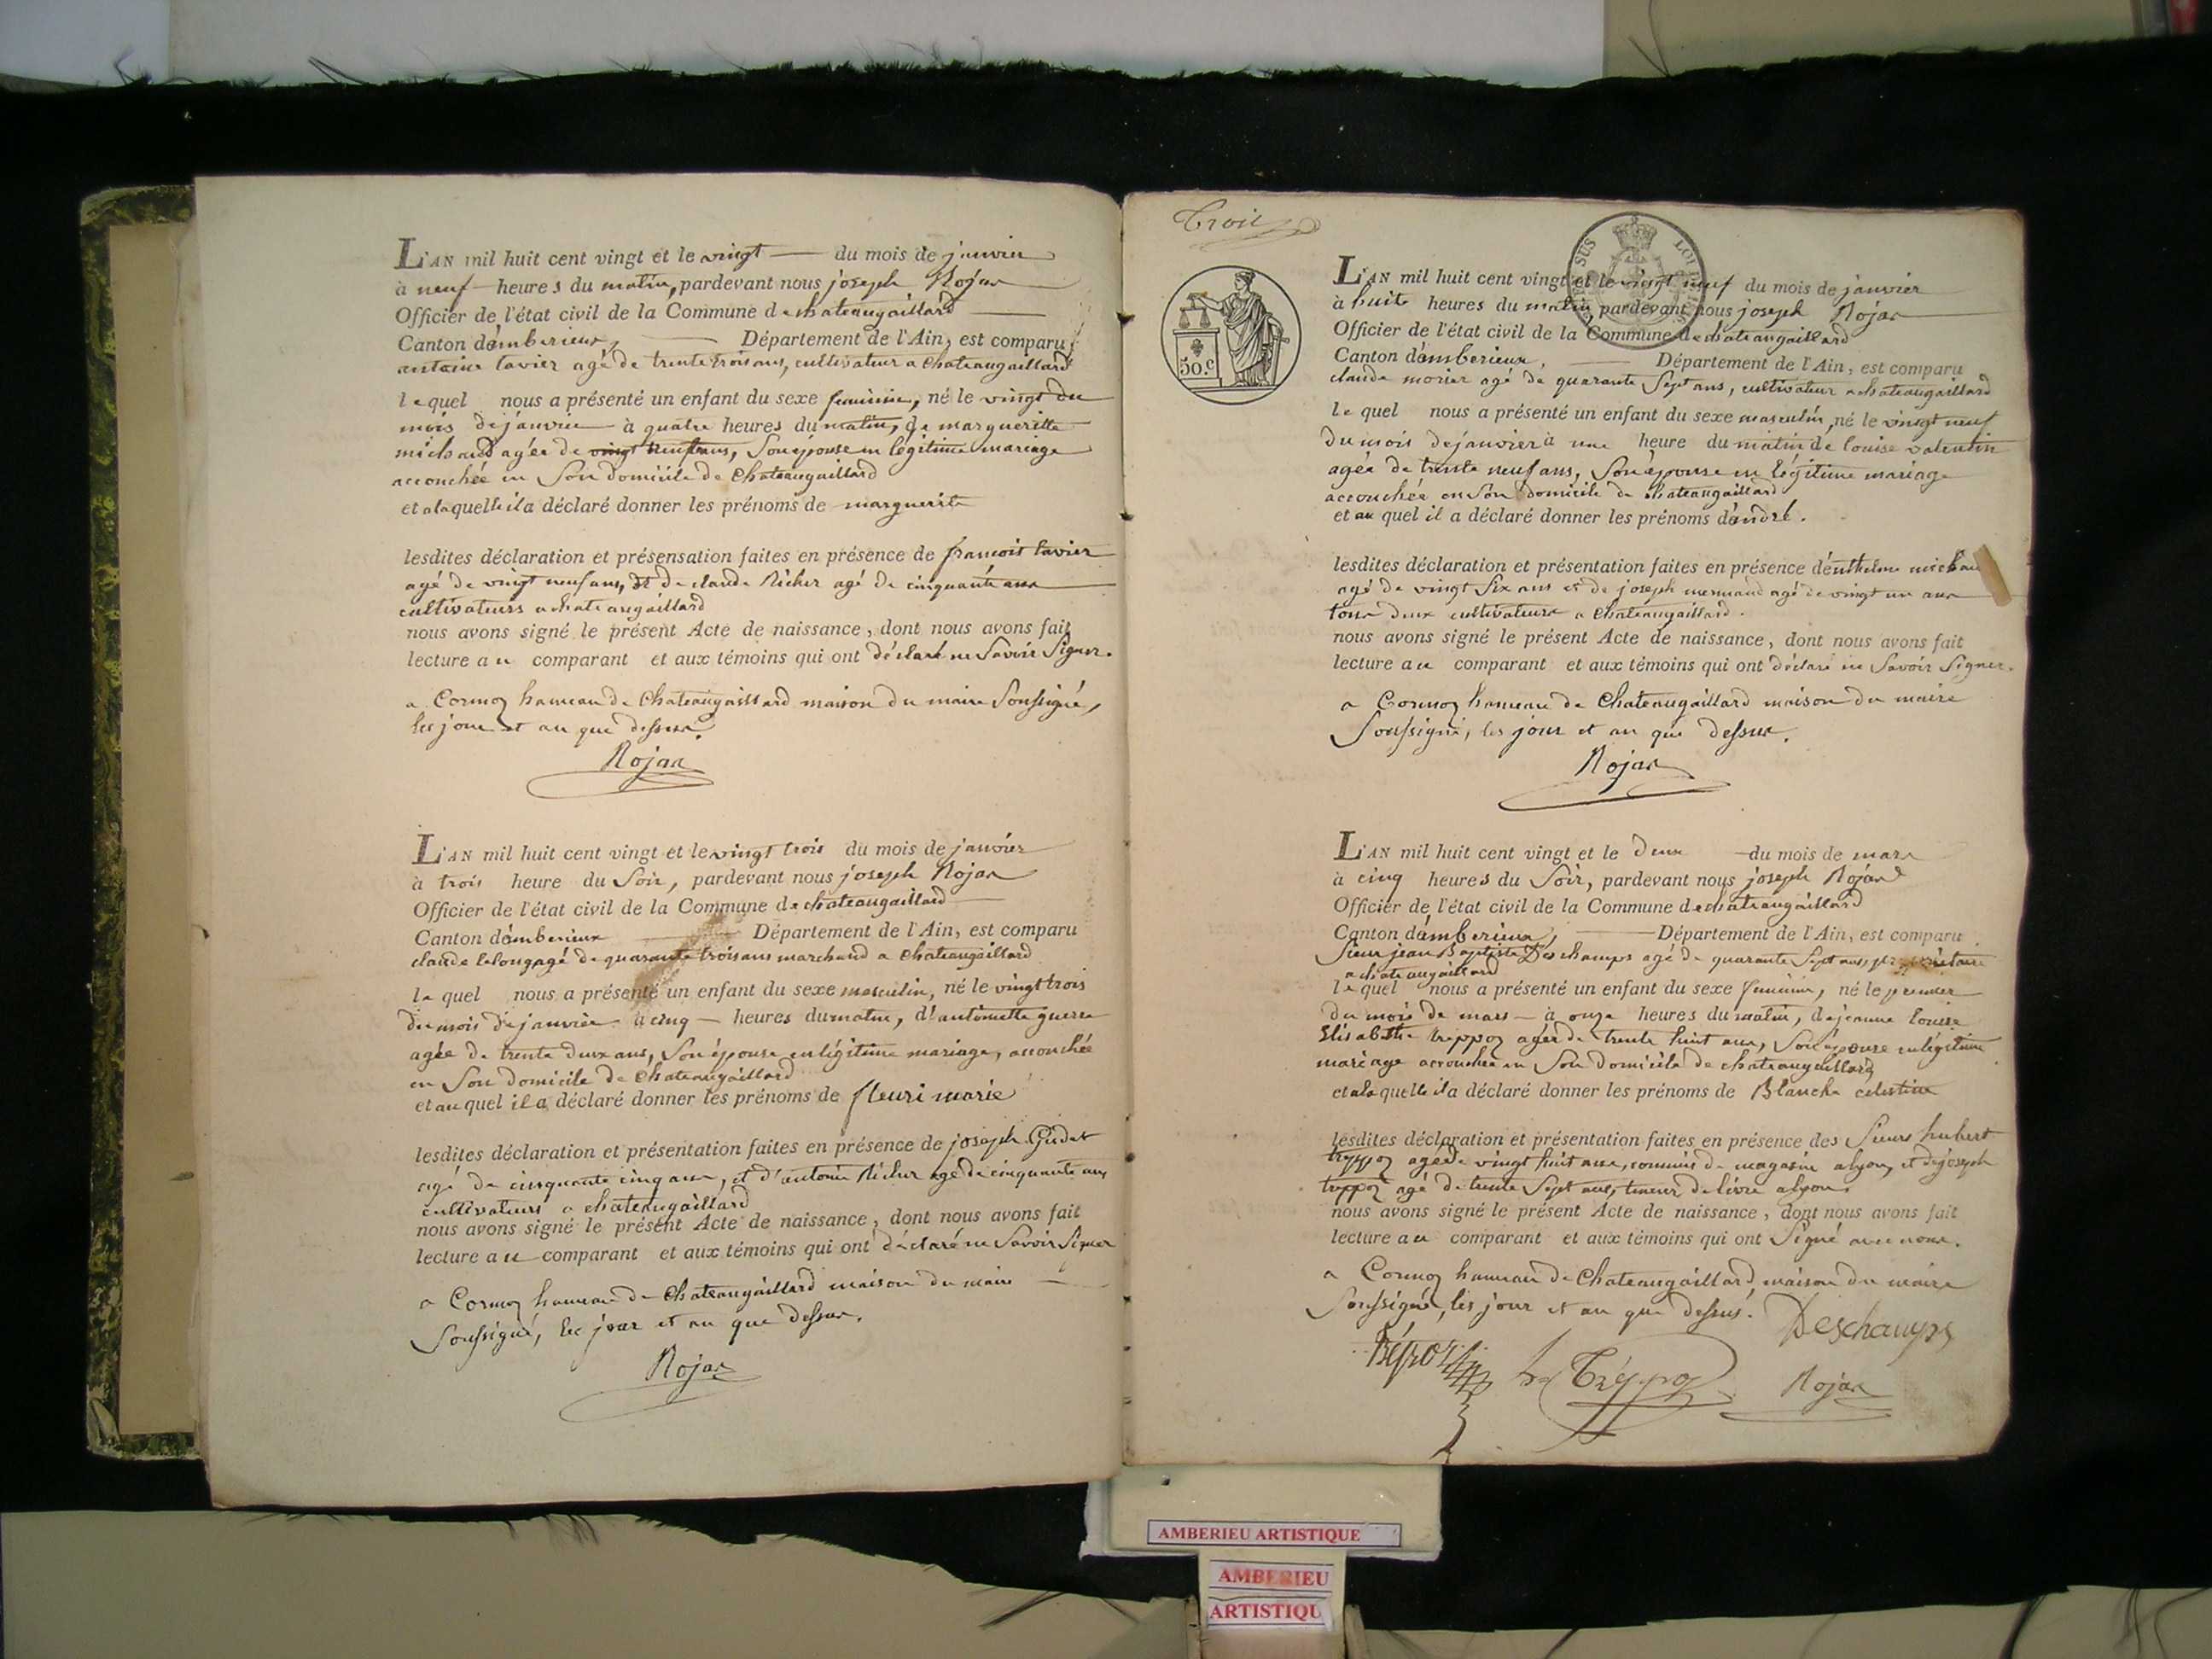 L'AN mil huit cent vingt et le vingt du mois de janvier
à neuf heures du matin, pardevant nous joseph Rojas
Officier de l'état civil de la Commune de chateaugaillard
Canton d'amberieux, Département de l'Ain, est comparu
antoine tavier agé de trente trois ans, cultivateur a chateaugaillard
lequel nous a présenté un enfant du sexe feminin, né le vingt du
mois de janvier à quatre heures du matin, de margueritte
michaud agée de vingt neuf ans, Son épouse en légitime mariage
accouchée en Son domicile de Chateaugaillard
et a laquelle il a déclaré donner les prénoms de marguerite
lesdites déclaration et présensation faites en présence de francois tavier
agé de vingt neuf ans, et de claude Richer agé de cinquante ans
cultivateurs a chateaugaillard
nous avons signé le présent Acte de naissance, dont nous avons fait
lecture au comparant et aux témoins qui ont déclaré ne Savoir Signer.
a Cormoz hameau de Chateaugaillard maison du maire Soussigné,
les jour et an que dessus.
Rojas
L'AN mil huit cent vingt et le vingt trois du mois de janvier
à trois heure du Soir, pardevant nous joseph Rojas
Officier de l'état civil de la Commune de chateaugaillard
Canton d'amberieux Département de l'Ain, est comparu
claude lelong agé de quarante trois ans marchand a Chateaugaillard
le quel nous a présenté un enfant du sexe masculin, né le vingt trois
du mois de janvier a cinq heures du matin, d'antoinette guerre
agée de trente deux ans, Son épouse en légitime mariage, accouchée
en Son domicile de Chateaugaillard
et au quel il a déclaré donner les prénoms de fleuri marie
lesdites déclaration et présentation faites en présence de joseph Gudet
agé de cinquante cinq ans, et d'antoine Richer agé de cinquante ans
cultivateurs a chateaugaillard
nous avons signé le présent Acte de naissance, dont nous avons fait
lecture au comparant et aux témoins qui ont déclaré ne Savoir Signer
a Cormoz hameau de Chateaugaillard maison du maire
Soussigné, les jour et an que dessus.
Rojas
Trois
SUS LOI
50.c
L'AN mil huit cent vingt et le vingt neuf du mois de janvier
à huit heures du matin, pardevant nous joseph Rojas
Officier de l'état civil de la Commune de chateaugaillard
Canton d'amberieux, Département de l'Ain, est comparu
claude morier agé de quarante Sept ans, cultivateur a chateaugaillard
le quel nous a présenté un enfant du sexe masculin, né le vingt neuf
du mois de janvier à une heure du matin de louise valentin
agée de trente neuf ans, Son épouse en légitime mariage
accouchée en Son domicile de chateaugaillard
et au quel il a déclaré donner les prénoms d'andré.
lesdites déclaration et présentation faites en présence d'enthelme michau
agé de vingt Six ans et de joseph mermand agé de vingt un ans
tous deux cultivateurs a Chateaugaillard.
nous avons signé le présent Acte de naissance, dont nous avons fait
lecture au comparant et aux témoins qui ont déclaré ne Savoir Signer.
a Cormoz hameau de Chateaugaillard maison du maire
Soussigné, les jour et an que dessus.
Rojas
L'AN mil huit cent vingt et le deux du mois de mars
à cinq heures du Soir, pardevant nous joseph Rojas
Officier de l'état civil de la Commune de chateaugaillard
Canton d'amberieux, Département de l'Ain, est comparu
Sieur jean Baptiste Deschamps agé de quarante Sept ans, propriétaire
a chateaugaillard
lequel nous a présenté un enfant du sexe feminin, né le premier
du mois de mars à onze heures du matin, de jeanne louise
Elisabethe treppoz agée de trente huit ans, Son épouse en légitime
mariage accouchée en Son domicile de chateaugaillard
et a la quelle il a déclaré donner les prénoms de Blanche celestine
lesdites déclaration et présentation faites en présence des Sieurs hubert
treppoz agé de vingt huit ans, commis de magasin a lyon, et de joseph
treppoz agé de trente Sept ans, teneur de livre a lyon
nous avons signé le présent Acte de naissance, dont nous avons fait
lecture au comparant et aux témoins qui ont Signé avec nous.
a Cormoz hameau de Chateaugaillard, maison du maire
Soussigné, les jour et an que dessus. Deschamps
Trépoz h. Tréppoz Rojas
AMBERIEU ARTISTIQUE
AMBERIEU
ARTISTIQU